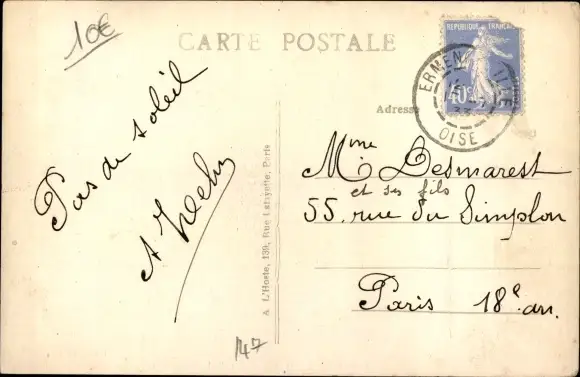 10€
CARTE POSTALE
RÉPUBLIQUE FRANÇAISE
40c
OISE
Adresse
Pas de soleil
Mme Desmarest
et ses fils
55, rue du Simplon
Paris 18e arr.
A. L'Hoste, 139, Rue Lafayette, Paris
147